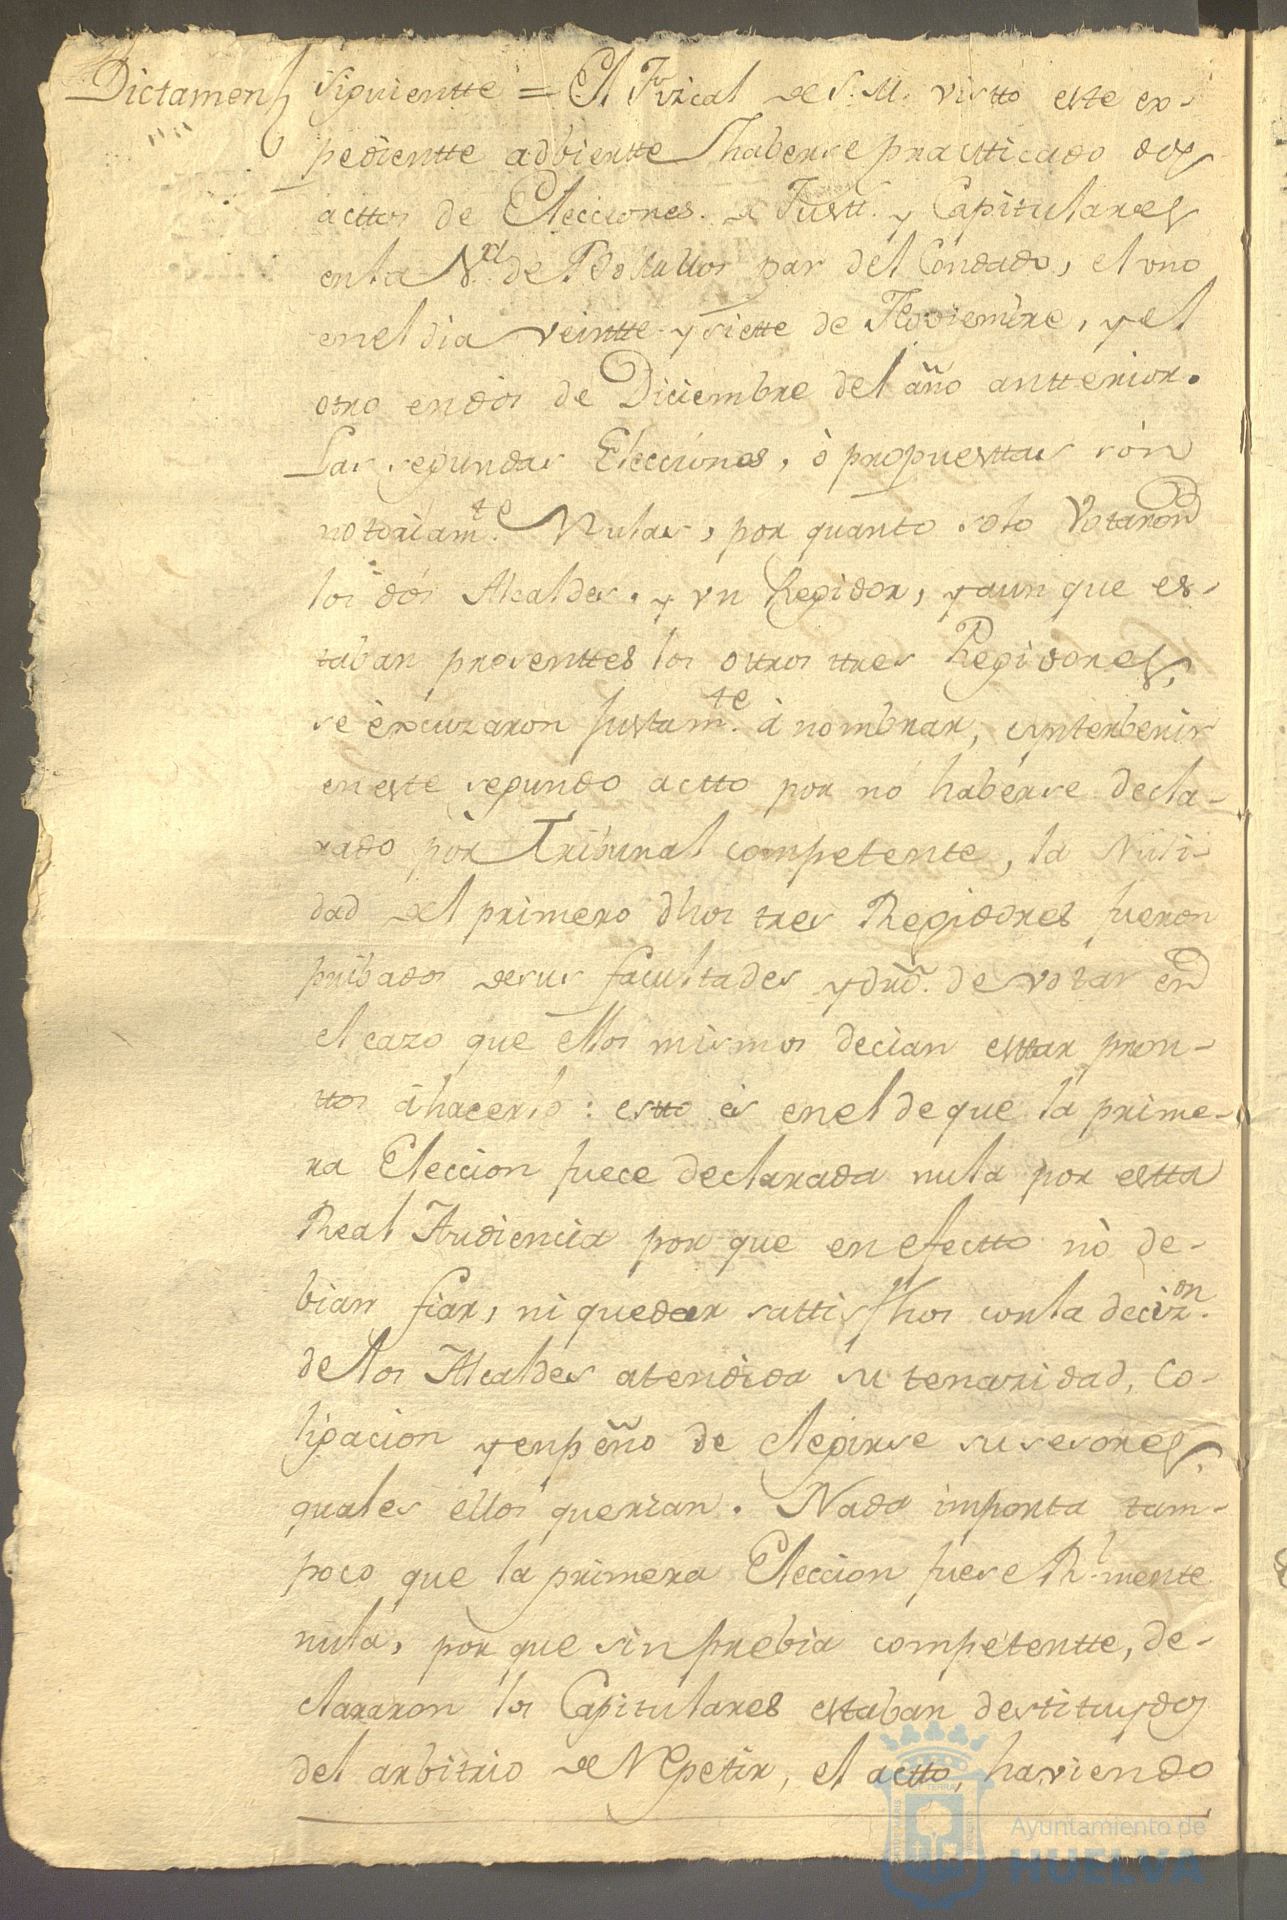 Dictamen
siguientte = El Fizcal de S. M. vistto este ex-
pedientte adviertte haberse practticado dos
acttos de Elecciones de Justt.ª y Capitulares
en la V.ª de Bollullos par del Condado, el uno
en el dia veintte y siette de Noviembre, y el
otro en dos de Diciembre del año antterior.
Las segundas Elecciones, ò propuesttas són
notoriam.te Nulas, por quanto solo Votaron
los dós Alcaldes, y vn Regidor, y aunque es-
taban presenttes los ottros ttres Regidores,
se èxcuzaron justam.te à nombrar, è ynterbenir
en este segundo actto por nó habérse decla-
rado pòr Tribunal competente, la Nuli-
dad del primero dhos tres Regidores fueron
pribados de sus facultades y dro. de votar en
el cazo que ellos mismos decian esttar pron-
ttos à hacerlo: estto ès en el de que la prime-
ra Eleccion fuece declarada nula por estta
Real Audiencia por que en efectto nò de-
bian fiar, ni quedar sattisfhos con la deciz.on
de los Alcaldes atendida su tenazidad, Co-
ligacion y enpeño de elegirse susesores,
quales ellos querian. Nada importa tam-
poco que la primera Eleccion fuese R.lmente
nula, por que sin prebia competentte, de-
clararon los Capitulares estaban destituydos
del arbitrio de Repetir, el actto, haviendo
Ayuntamiento de
HUELVA